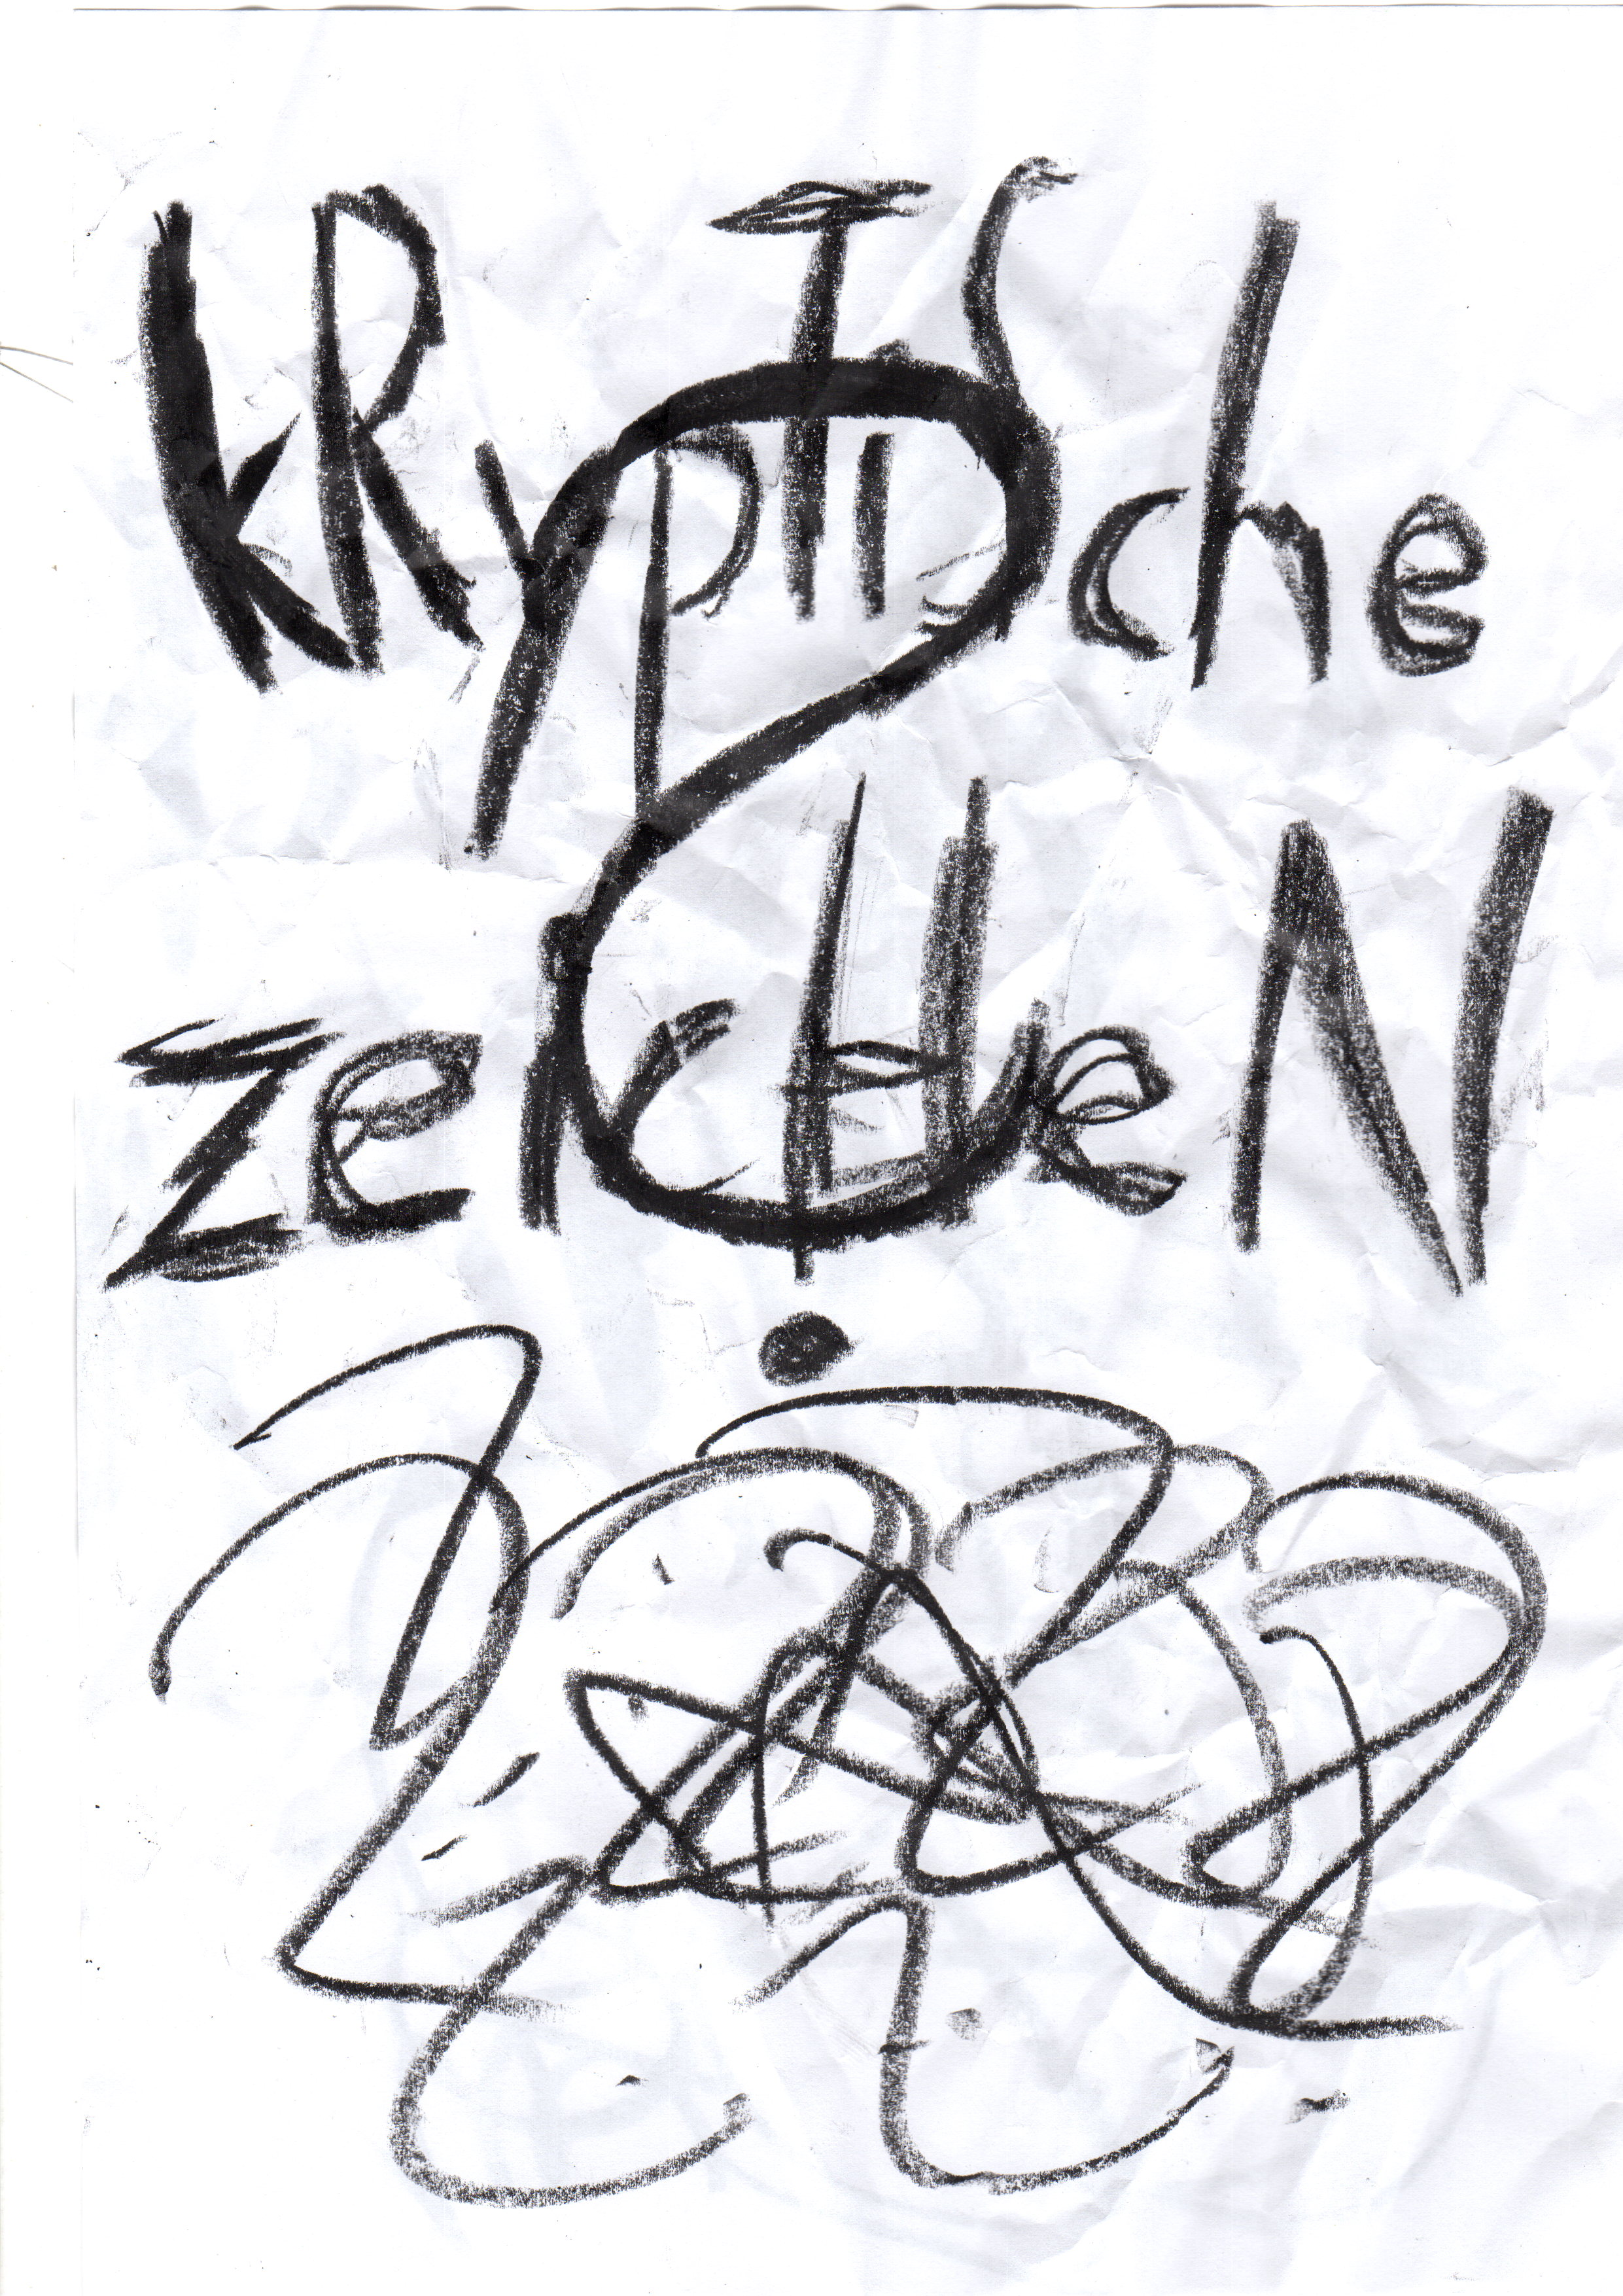 kRypTische
zeicHeN